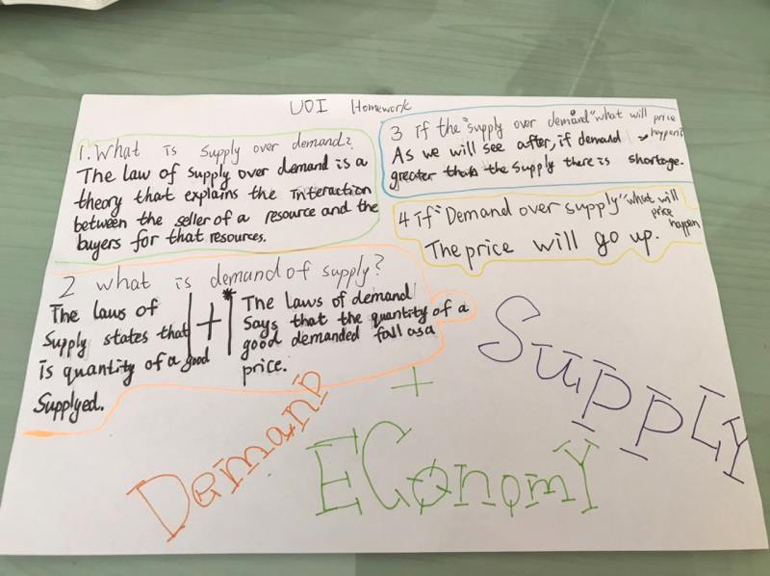 UOI Homework
1. What is supply over demand?
The law of supply over demand is a
theory that explains the interaction
between the seller of a resource and the
buyers for that resources.
3 if the "supply over demand" what will price
happen
As we will see after, if demand
greater than the supply there is shortage.
4 if "Demand over supply" what will
price
happen
The price will go up.
2 what is demand of supply?
The laws of
supply states that
is quantity of a good
Supplyed.
+
* The laws of demand
says that the quantity of a
good demanded fall as a
price.
Demand
+
Economy
Supply